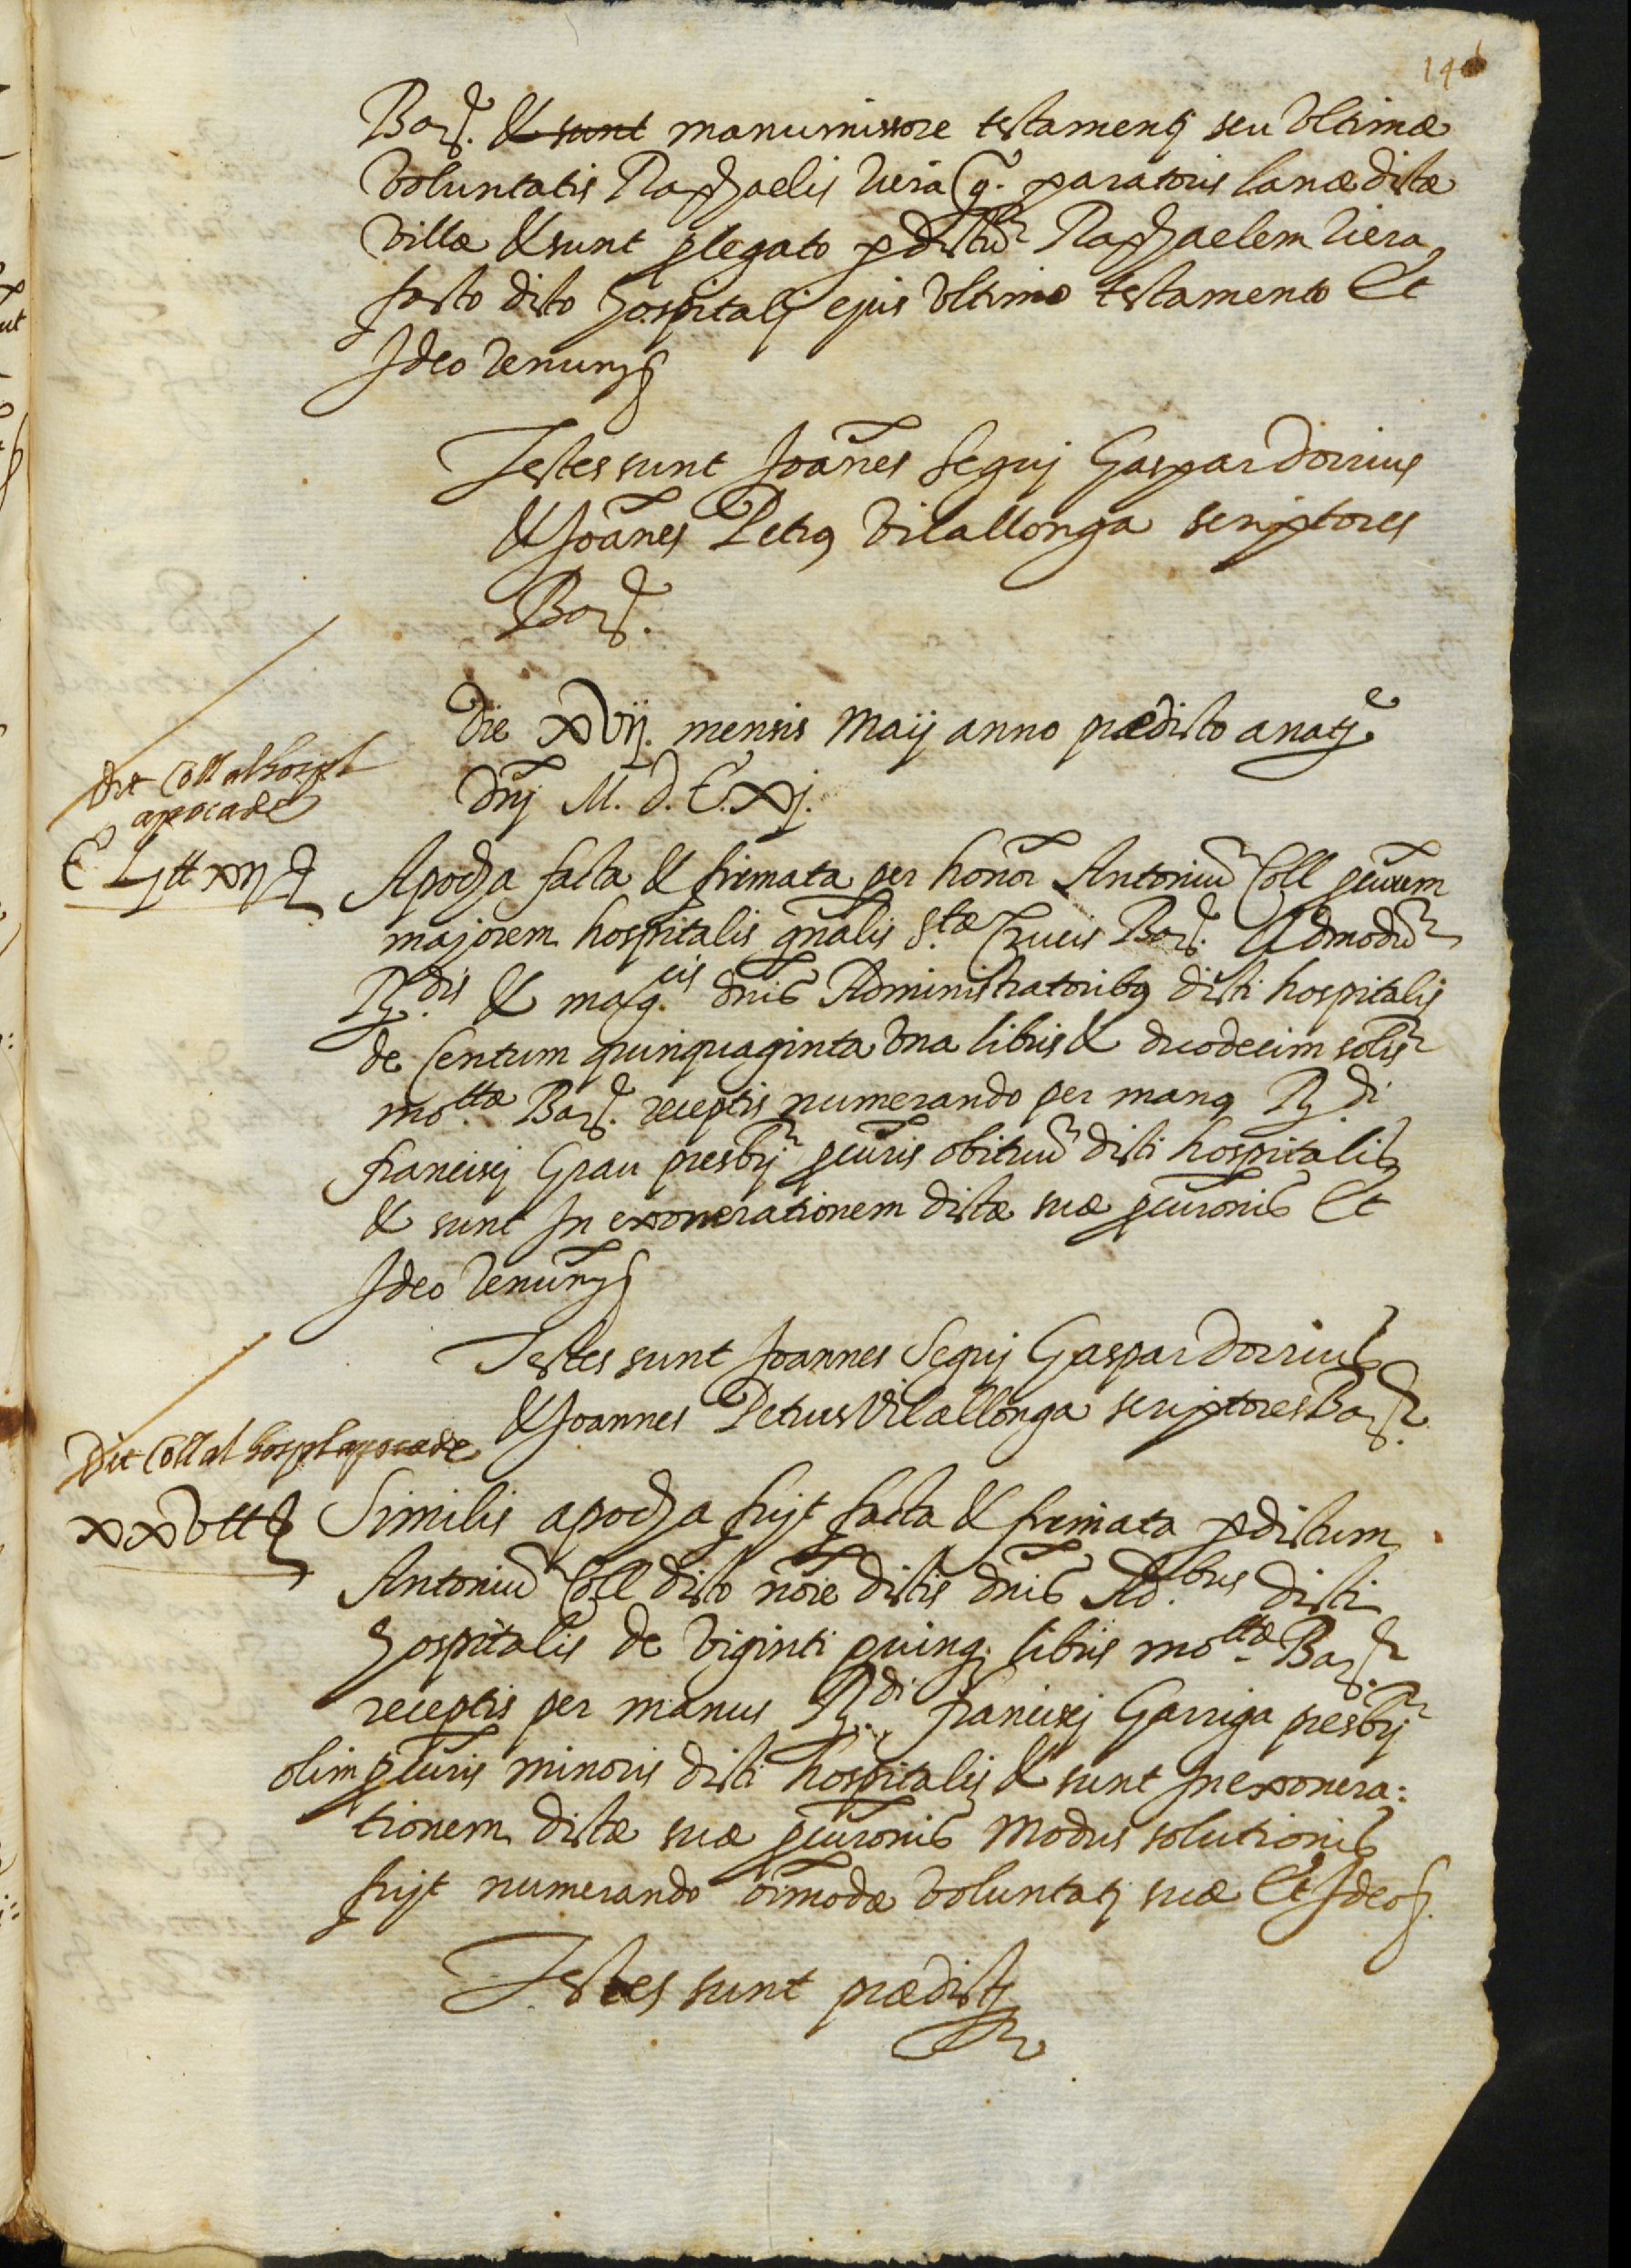 146
Barñ. & sunt manumissore testamentj seu Vltimæ
Voluntatis Raphaelis Riera q.º paratoris lanæ dictæ
Villæ & sunt p legato p dictũ Raphaelem Riera
facto dicto hospitalj ejus Vltimo testamento Et
Ideo Renuns
Testes sunt Joãnes Seguj Gaspar Dorrius
& Joãnes Petrus Vilallonga scriptores
Barñ.
Die XVij. mensis Maij anno prædicto a natj.e
Dñj M. D. C. Xj.
Dit Coll al hospl
apoca de
C Lj tt xij s
Apocha facta & firmata per honor Antoniũ Coll p̃curem
majorem hospitalis gñalis S.tæ Crucis Barñ. Admodũ
R.dis & mag.cis dñis Administratoribus dicti hospitalis
de Centum quinquaginta Vna libris & duodecim solis
mo.ttæ Barñ. receptis numerando per manus R.di
franciscj Grau presbrj p̃curis obituũ dicti hospitalis
& sunt In exonerationem dictæ suæ p̃curonis Et
Ideo Renuñs
Testes sunt Joannes Seguj Gaspar Dorrius
& Joannes Petrus Vilallonga scriptores Barñ.
Dit Coll al hospl apoca de
xxv tt s
Similis apocha fujt facta & firmata p dictum
Antoniũ Coll dicto nõie dictis dñis Ad.bus dicti
hospitalis de Viginti quinq; libris mo.ttæ Barñ.
receptis per manus R.di franciscj Garriga presbrj
olim p̃curis minoris dicti hospitalis & sunt In exonera:
tionem dictæ suæ p̃curonis Modus solutionis
fujt numerando oĩmodæ Voluntatj suæ Et Ideo s.
Testes sunt prædictj